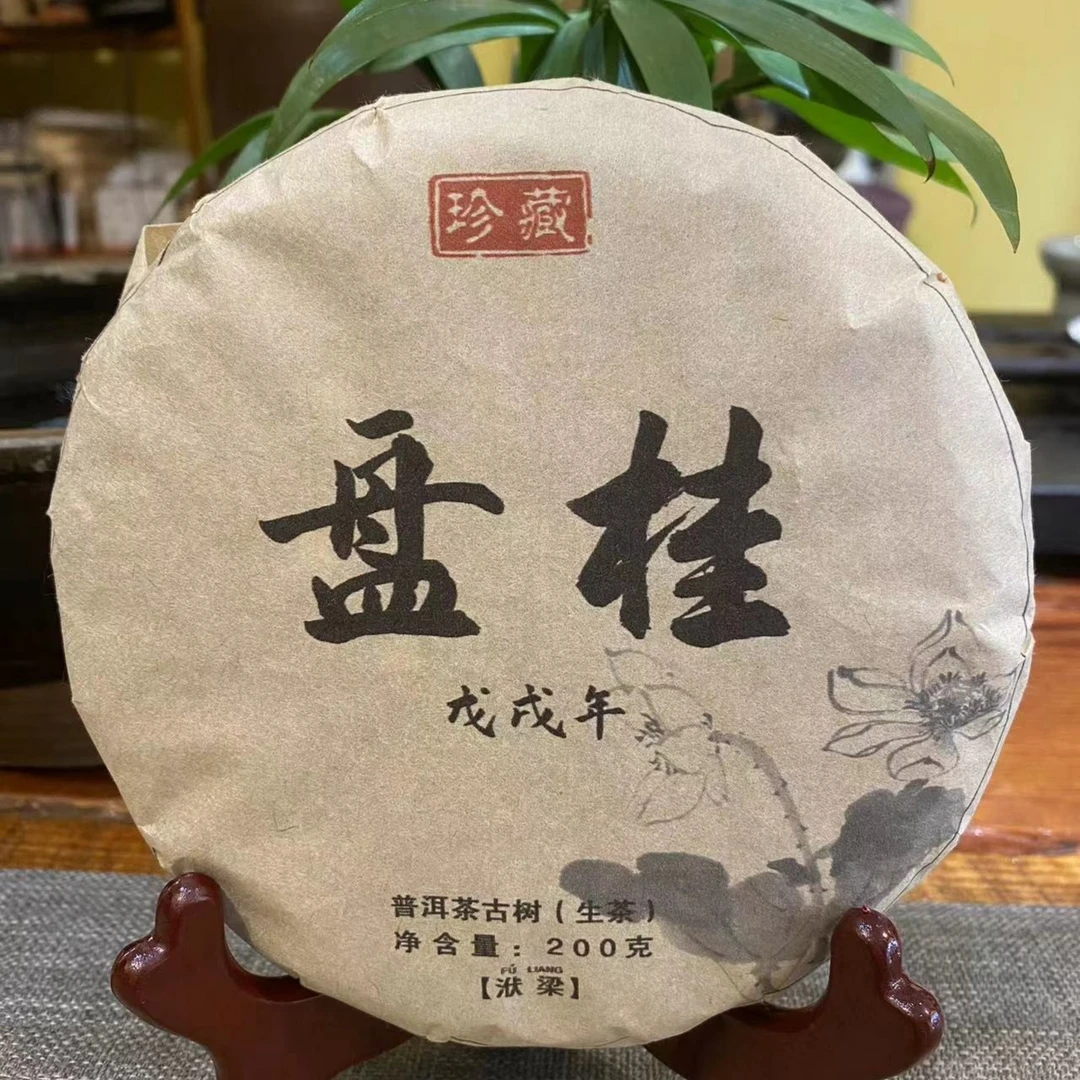 珍藏
盘桂
戊戌年
普洱茶古树（生茶）
净含量：200克
FÚ LIANG
【洑梁】